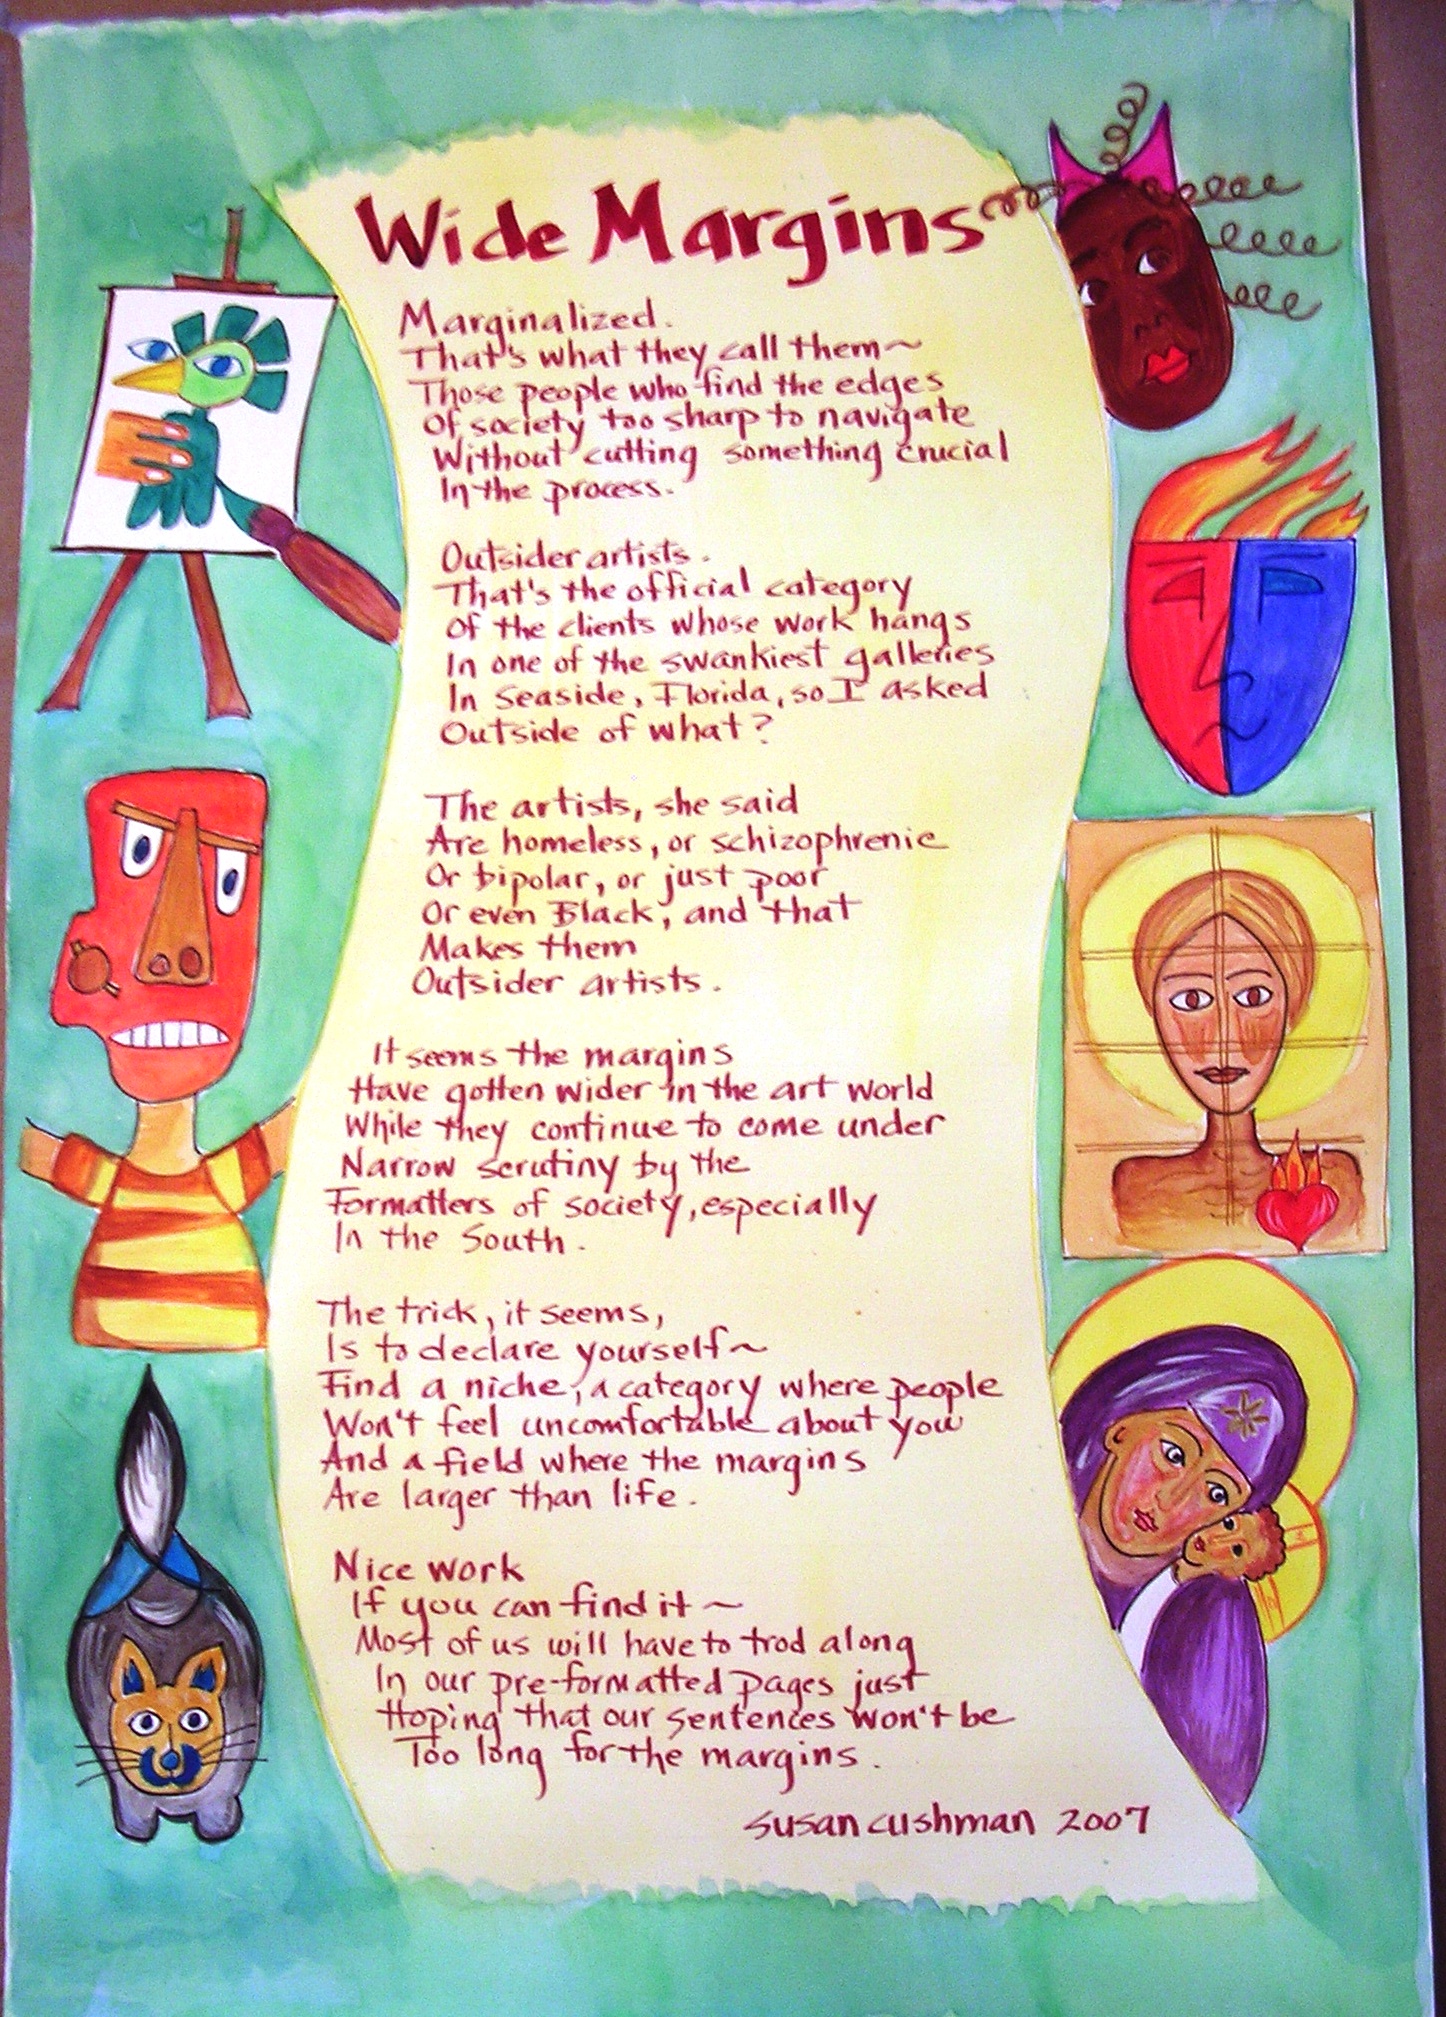 Wide Margins
Marginalized.
That's what they call them~
Those people who find the edges
Of society too sharp to navigate
Without cutting something crucial
In the process.
Outsider artists.
That's the official category
Of the clients whose work hangs
In one of the swankiest galleries
In Seaside, Florida, so I asked
Outside of what?
The artists, she said
Are homeless, or schizophrenic
Or bipolar, or just poor
Or even Black, and that
Makes them
Outsider artists.
It seems the margins
Have gotten wider in the art world
While they continue to come under
Narrow scrutiny by the
Formatters of society, especially
In the South.
The trick, it seems,
Is to declare yourself~
Find a niche, a category where people
Won't feel uncomfortable about you
And a field where the margins
Are larger than life.
Nice work
If you can find it~
Most of us will have to trod along
In our pre-formatted pages just
Hoping that our sentences won't be
Too long for the margins.
Susan Cushman 2007